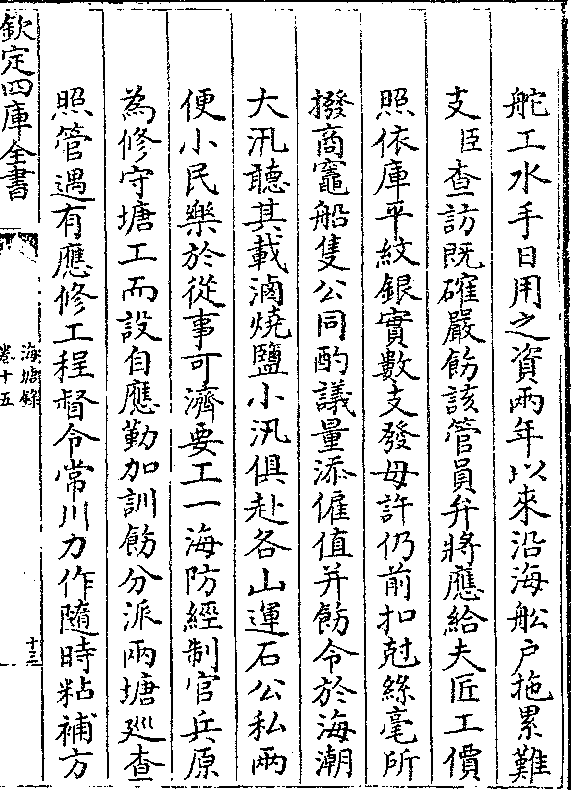 舵工水手日用之資兩年以來沿海舩户拖累難
支臣查訪既確嚴飭該管員弁將應給夫匠工價
照依庫平紋銀實數支發毋許仍前扣尅絲毫所
撥商竈船隻公同酌議量添僱值并飭令於海潮
大汛聽其載滷燒鹽小汛俱赴各山運石公私兩
便小民樂於從事可濟要工一海防經制官兵原
為修守塘工而設自應勤加訓飭分派兩塘廵查
照管遇有應修工程督令常川力作隨時粘補方
欽定四庫全書
海塘錄
卷十五
十三